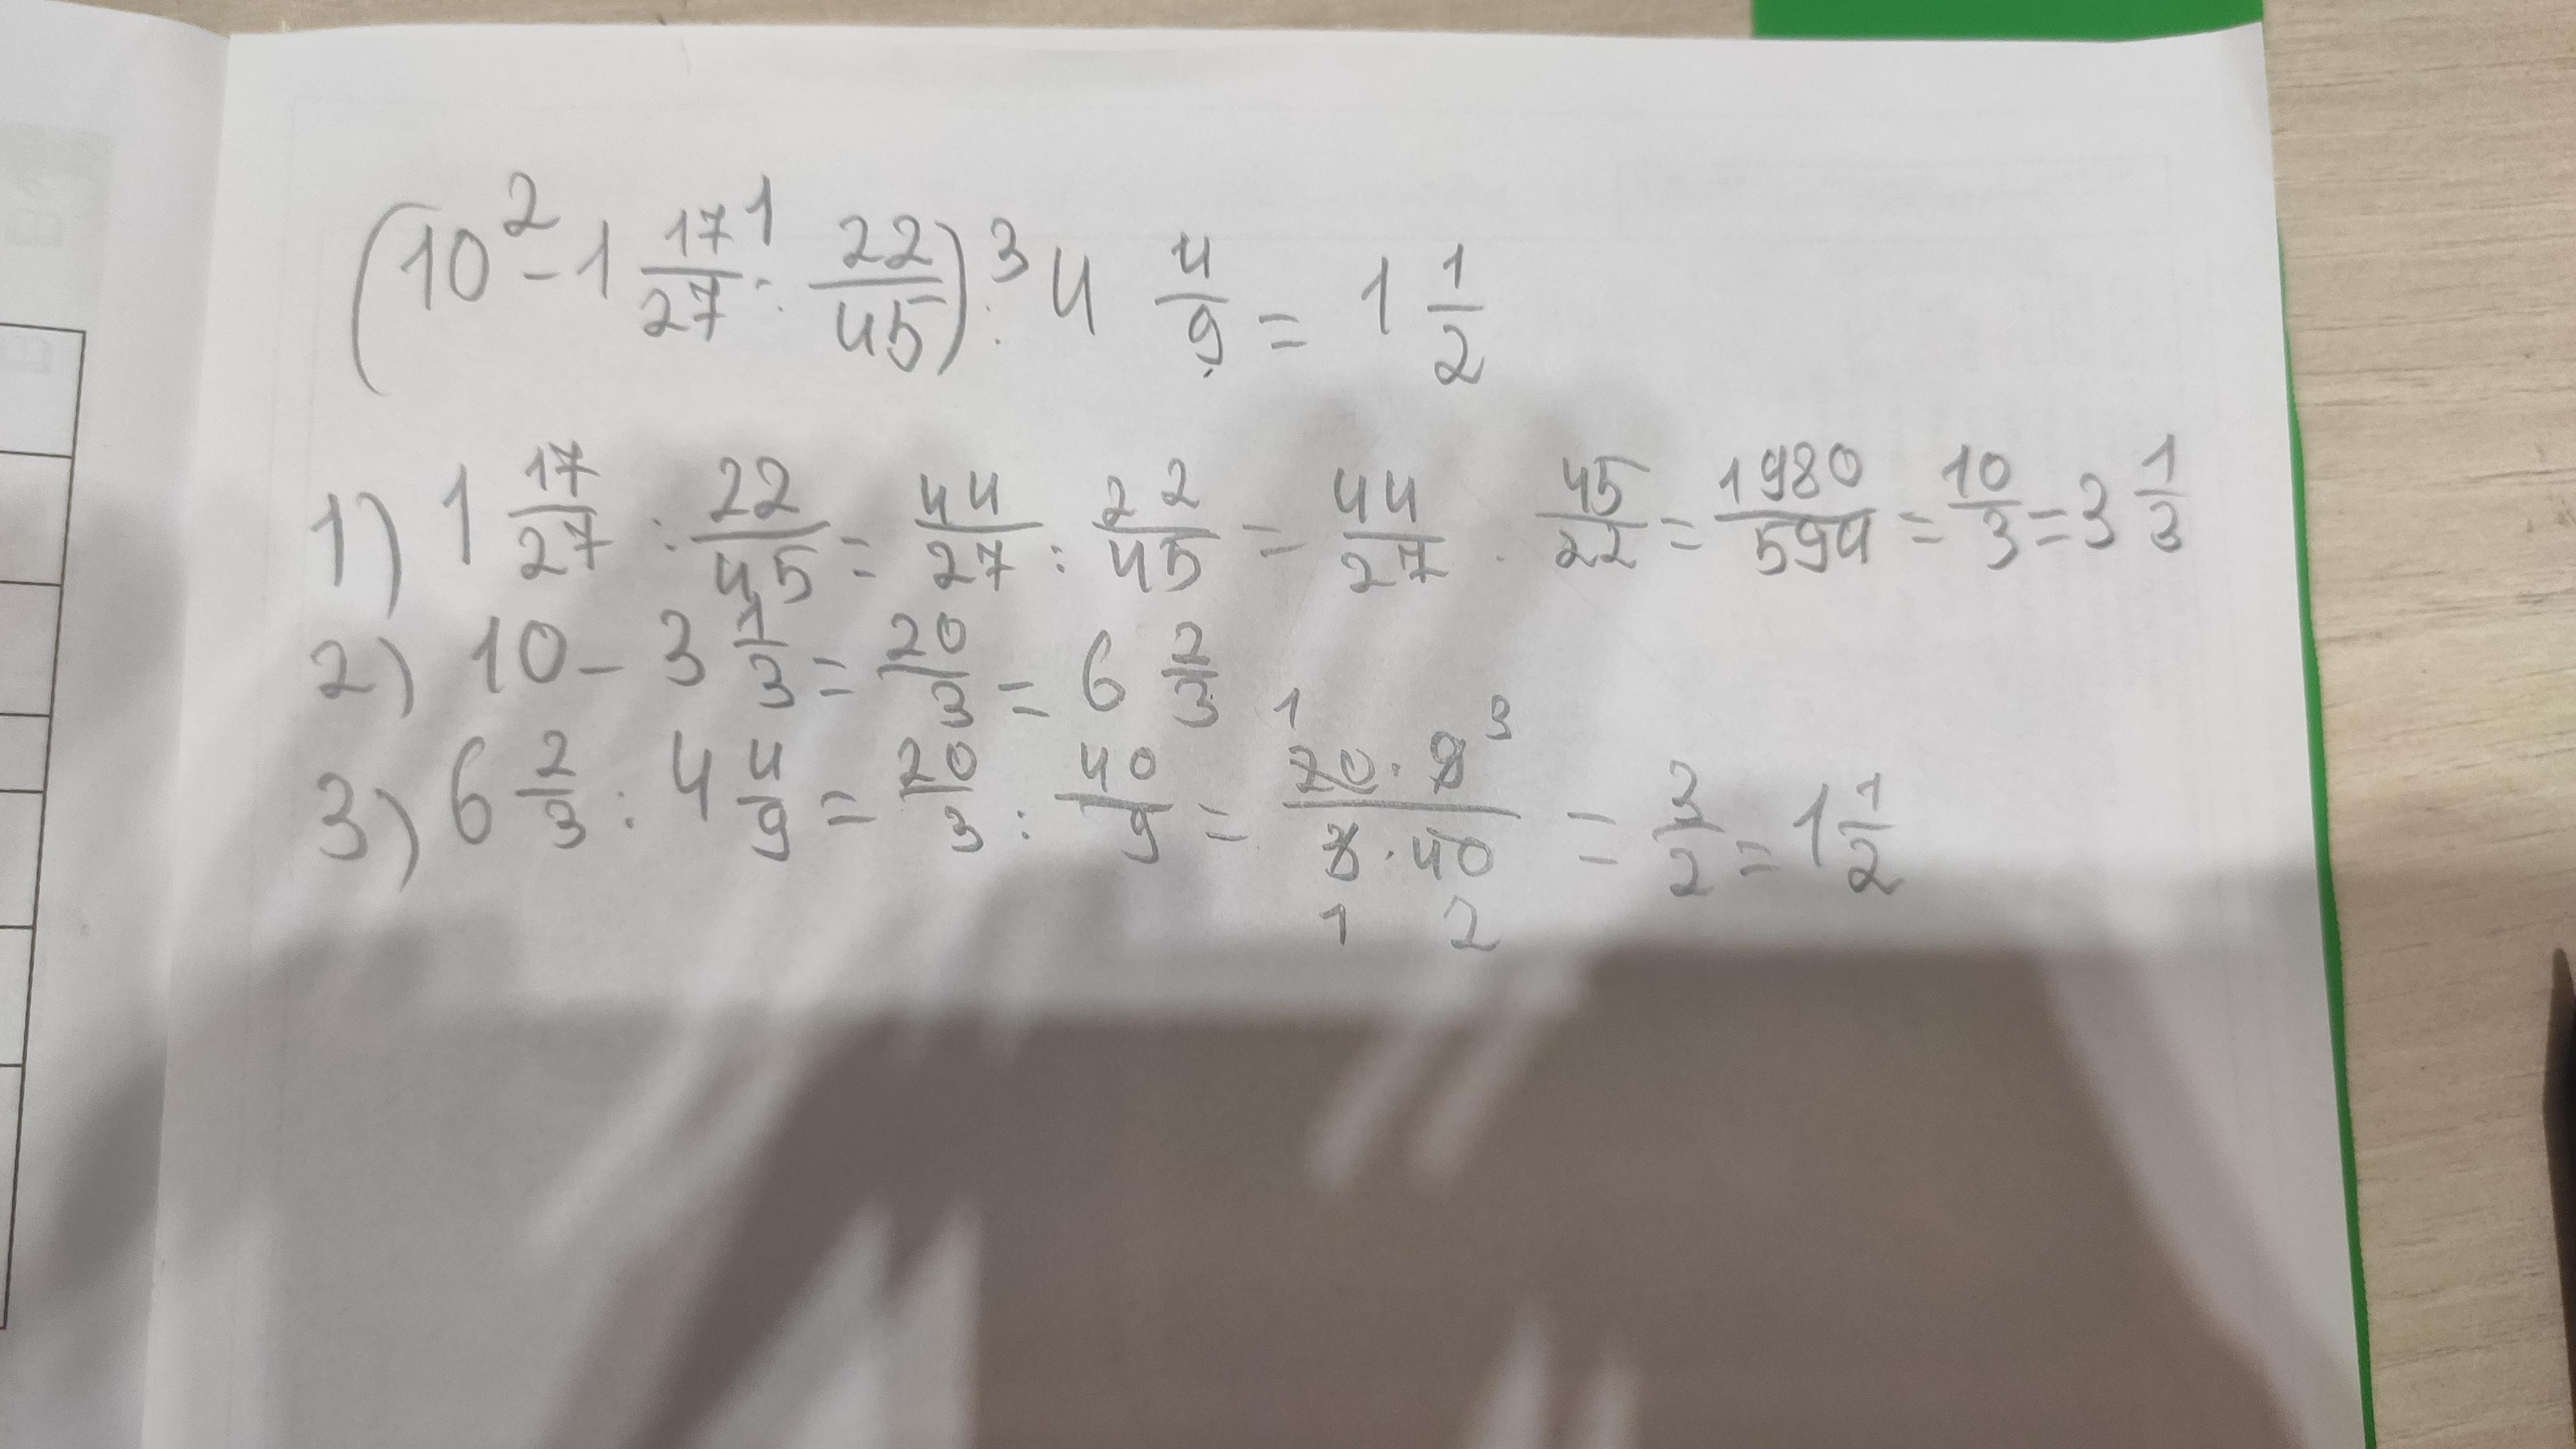 (10² - 1 17/27 :¹ 22/45) :³ 4 4/9 = 1 1/2
1) 1 17/27 : 22/45 = 44/27 : 22/45 = 44/27 · 45/22 = 1980/594 = 10/3 = 3 1/3
2) 10 - 3 1/3 = 20/3 = 6 2/3
3) 6 2/3 : 4 4/9 = 20/3 : 40/9 = 20 · 9 / 3 · 40 = 3/2 = 1 1/2